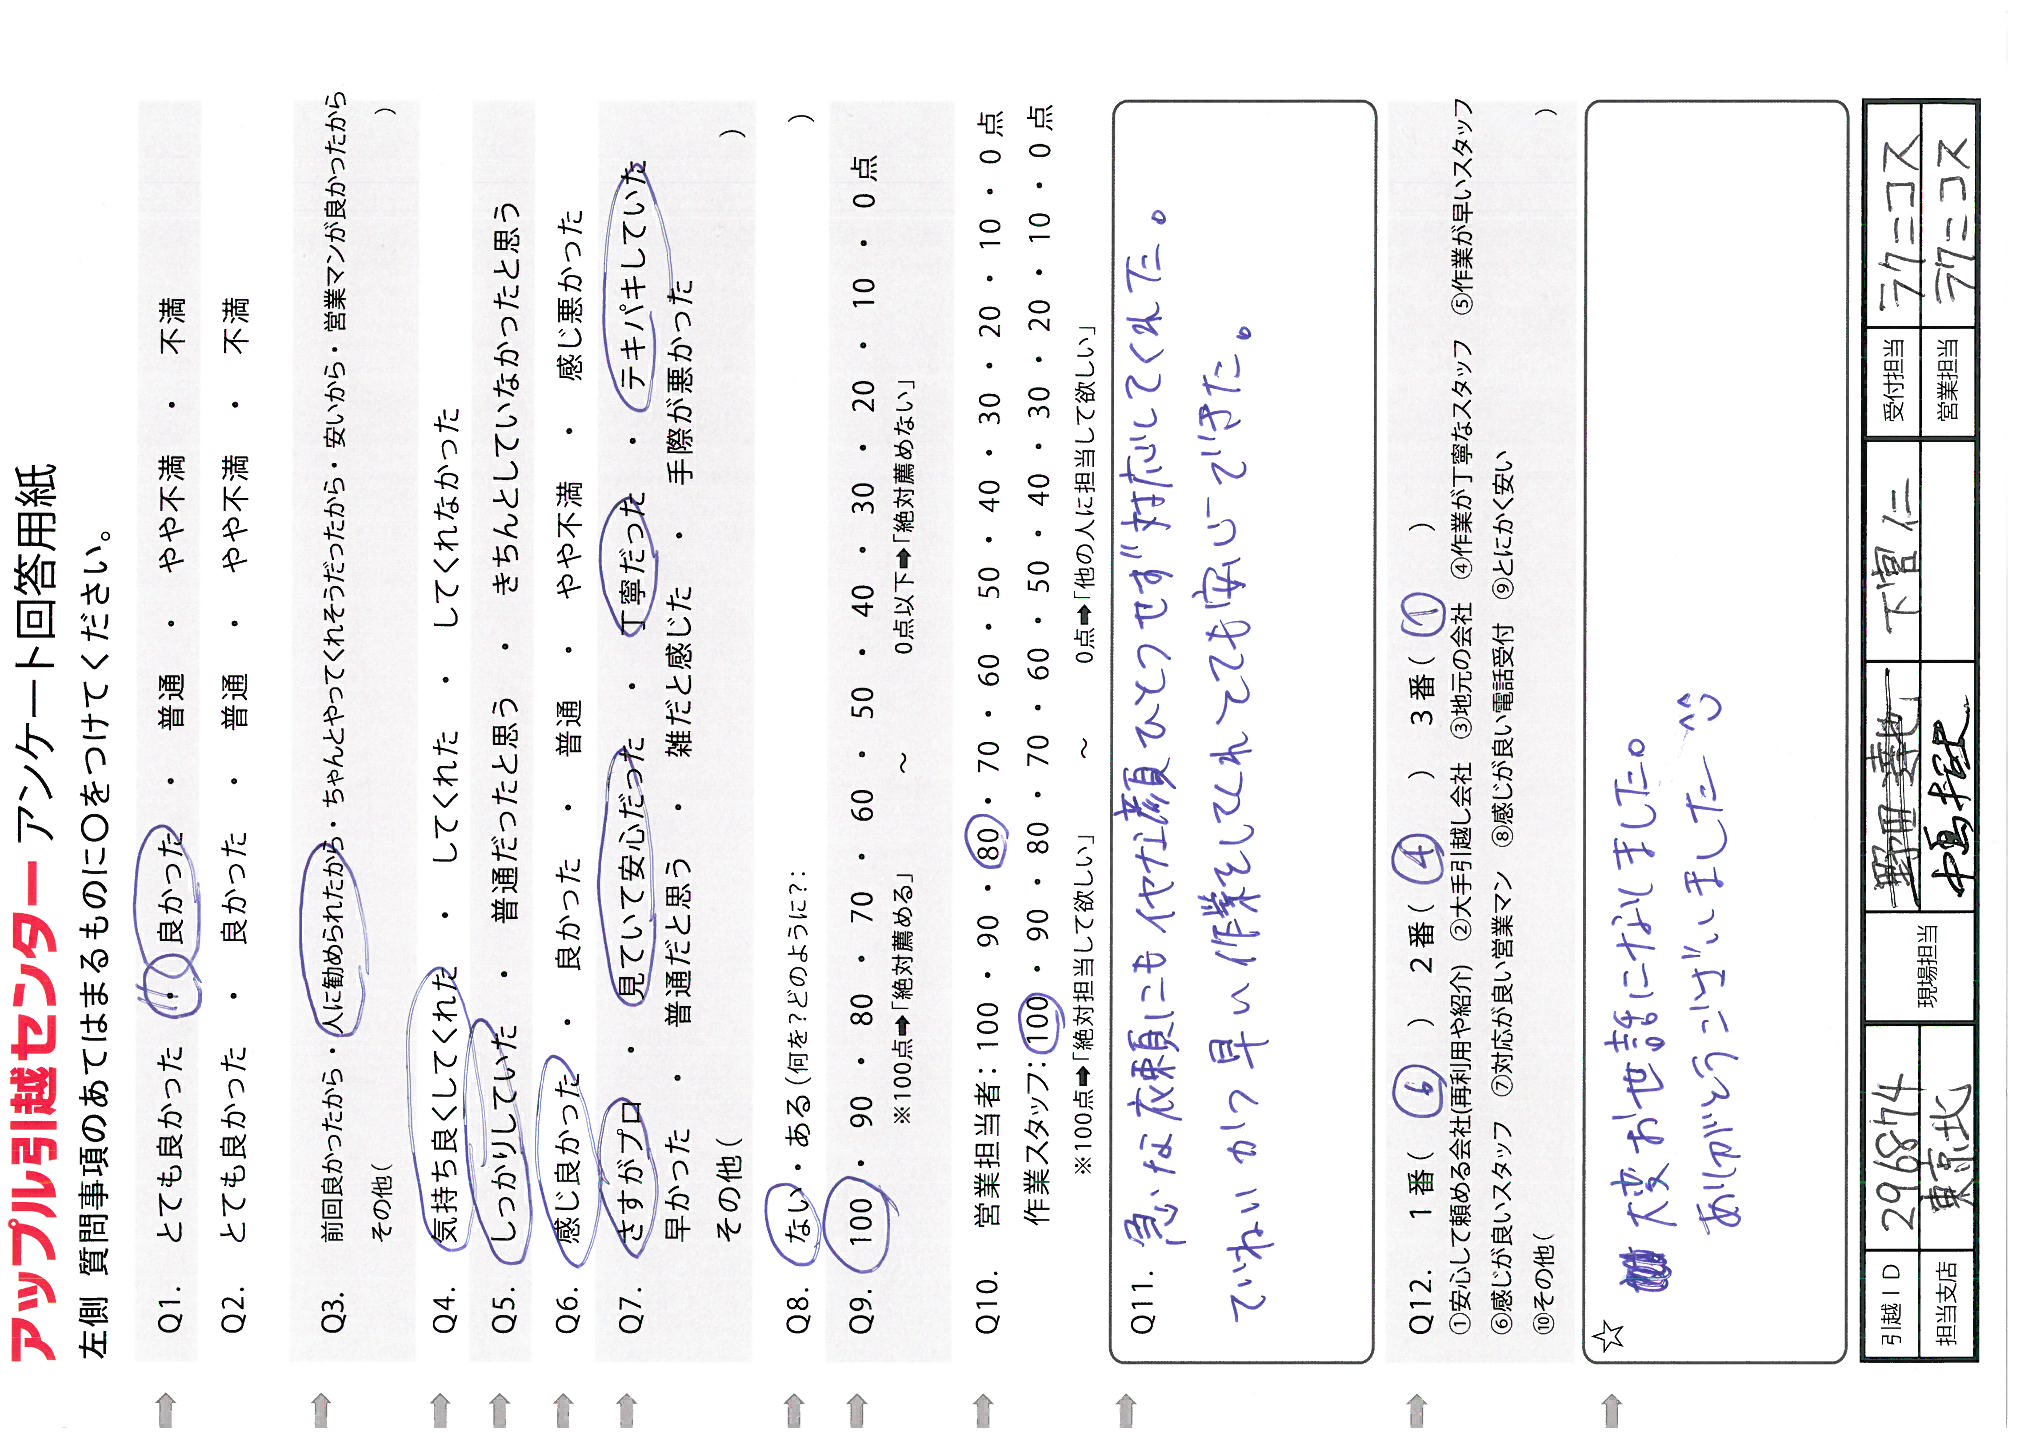 アップル引越センター アンケート回答用紙
左側 質問事項のあてはまるものに〇をつけてください。
Q1. とても良かった ・ 良かった ・ 普通 ・ やや不満 ・ 不満
Q2. とても良かった ・ 良かった ・ 普通 ・ やや不満 ・ 不満
Q3. 前回良かったから・人に勧められたから・ちゃんとやってくれそうだったから・安いから・営業マンが良かったから
その他( )
Q4. 気持ち良くしてくれた ・ してくれた ・ してくれなかった
Q5. しっかりしていた ・ 普通だったと思う ・ きちんとしていなかったと思う
Q6. 感じ良かった ・ 良かった ・ 普通 ・ やや不満 ・ 感じ悪かった
Q7. さすがプロ ・ 見ていて安心だった ・ 丁寧だった ・ テキパキしていた
早かった ・ 普通だと思う ・ 雑だと感じた ・ 手際が悪かった
その他( )
Q8. ない・ある(何を?どのように?: )
Q9. 100・ 90 ・ 80 ・ 70 ・ 60 ・ 50 ・ 40 ・ 30 ・ 20 ・ 10 ・ 0 点
※100点➡「絶対薦める」 ～ 0点以下➡「絶対薦めない」
Q10. 営業担当者：100 ・ 90 ・ 80 ・ 70 ・ 60 ・ 50 ・ 40 ・ 30 ・ 20 ・ 10 ・ 0 点
作業スタッフ：100 ・ 90 ・ 80 ・ 70 ・ 60 ・ 50 ・ 40 ・ 30 ・ 20 ・ 10 ・ 0 点
※100点➡「絶対担当して欲しい」 ～ 0点➡「他の人に担当して欲しい」
Q11. 急な依頼にもイヤな顔ひとつせず対応してくれた。
ていねいかつ早い作業をしてくれてとても安心できた。
Q12. 1番( 6 ) 2番( 4 ) 3番( 1 )
①安心して頼める会社(再利用や紹介) ②大手引越し会社 ③地元の会社 ④作業が丁寧なスタッフ ⑤作業が早いスタッフ
⑥感じが良いスタッフ ⑦対応が良い営業マン ⑧感じが良い電話受付 ⑨とにかく安い
⑩その他( )
☆
大変お世話になりました。
ありがとうございました ^^
引越ID 296874 現場担当 下宮 仁 受付担当 ラクニコス
担当支店 東京北 営業担当 ラクニコス